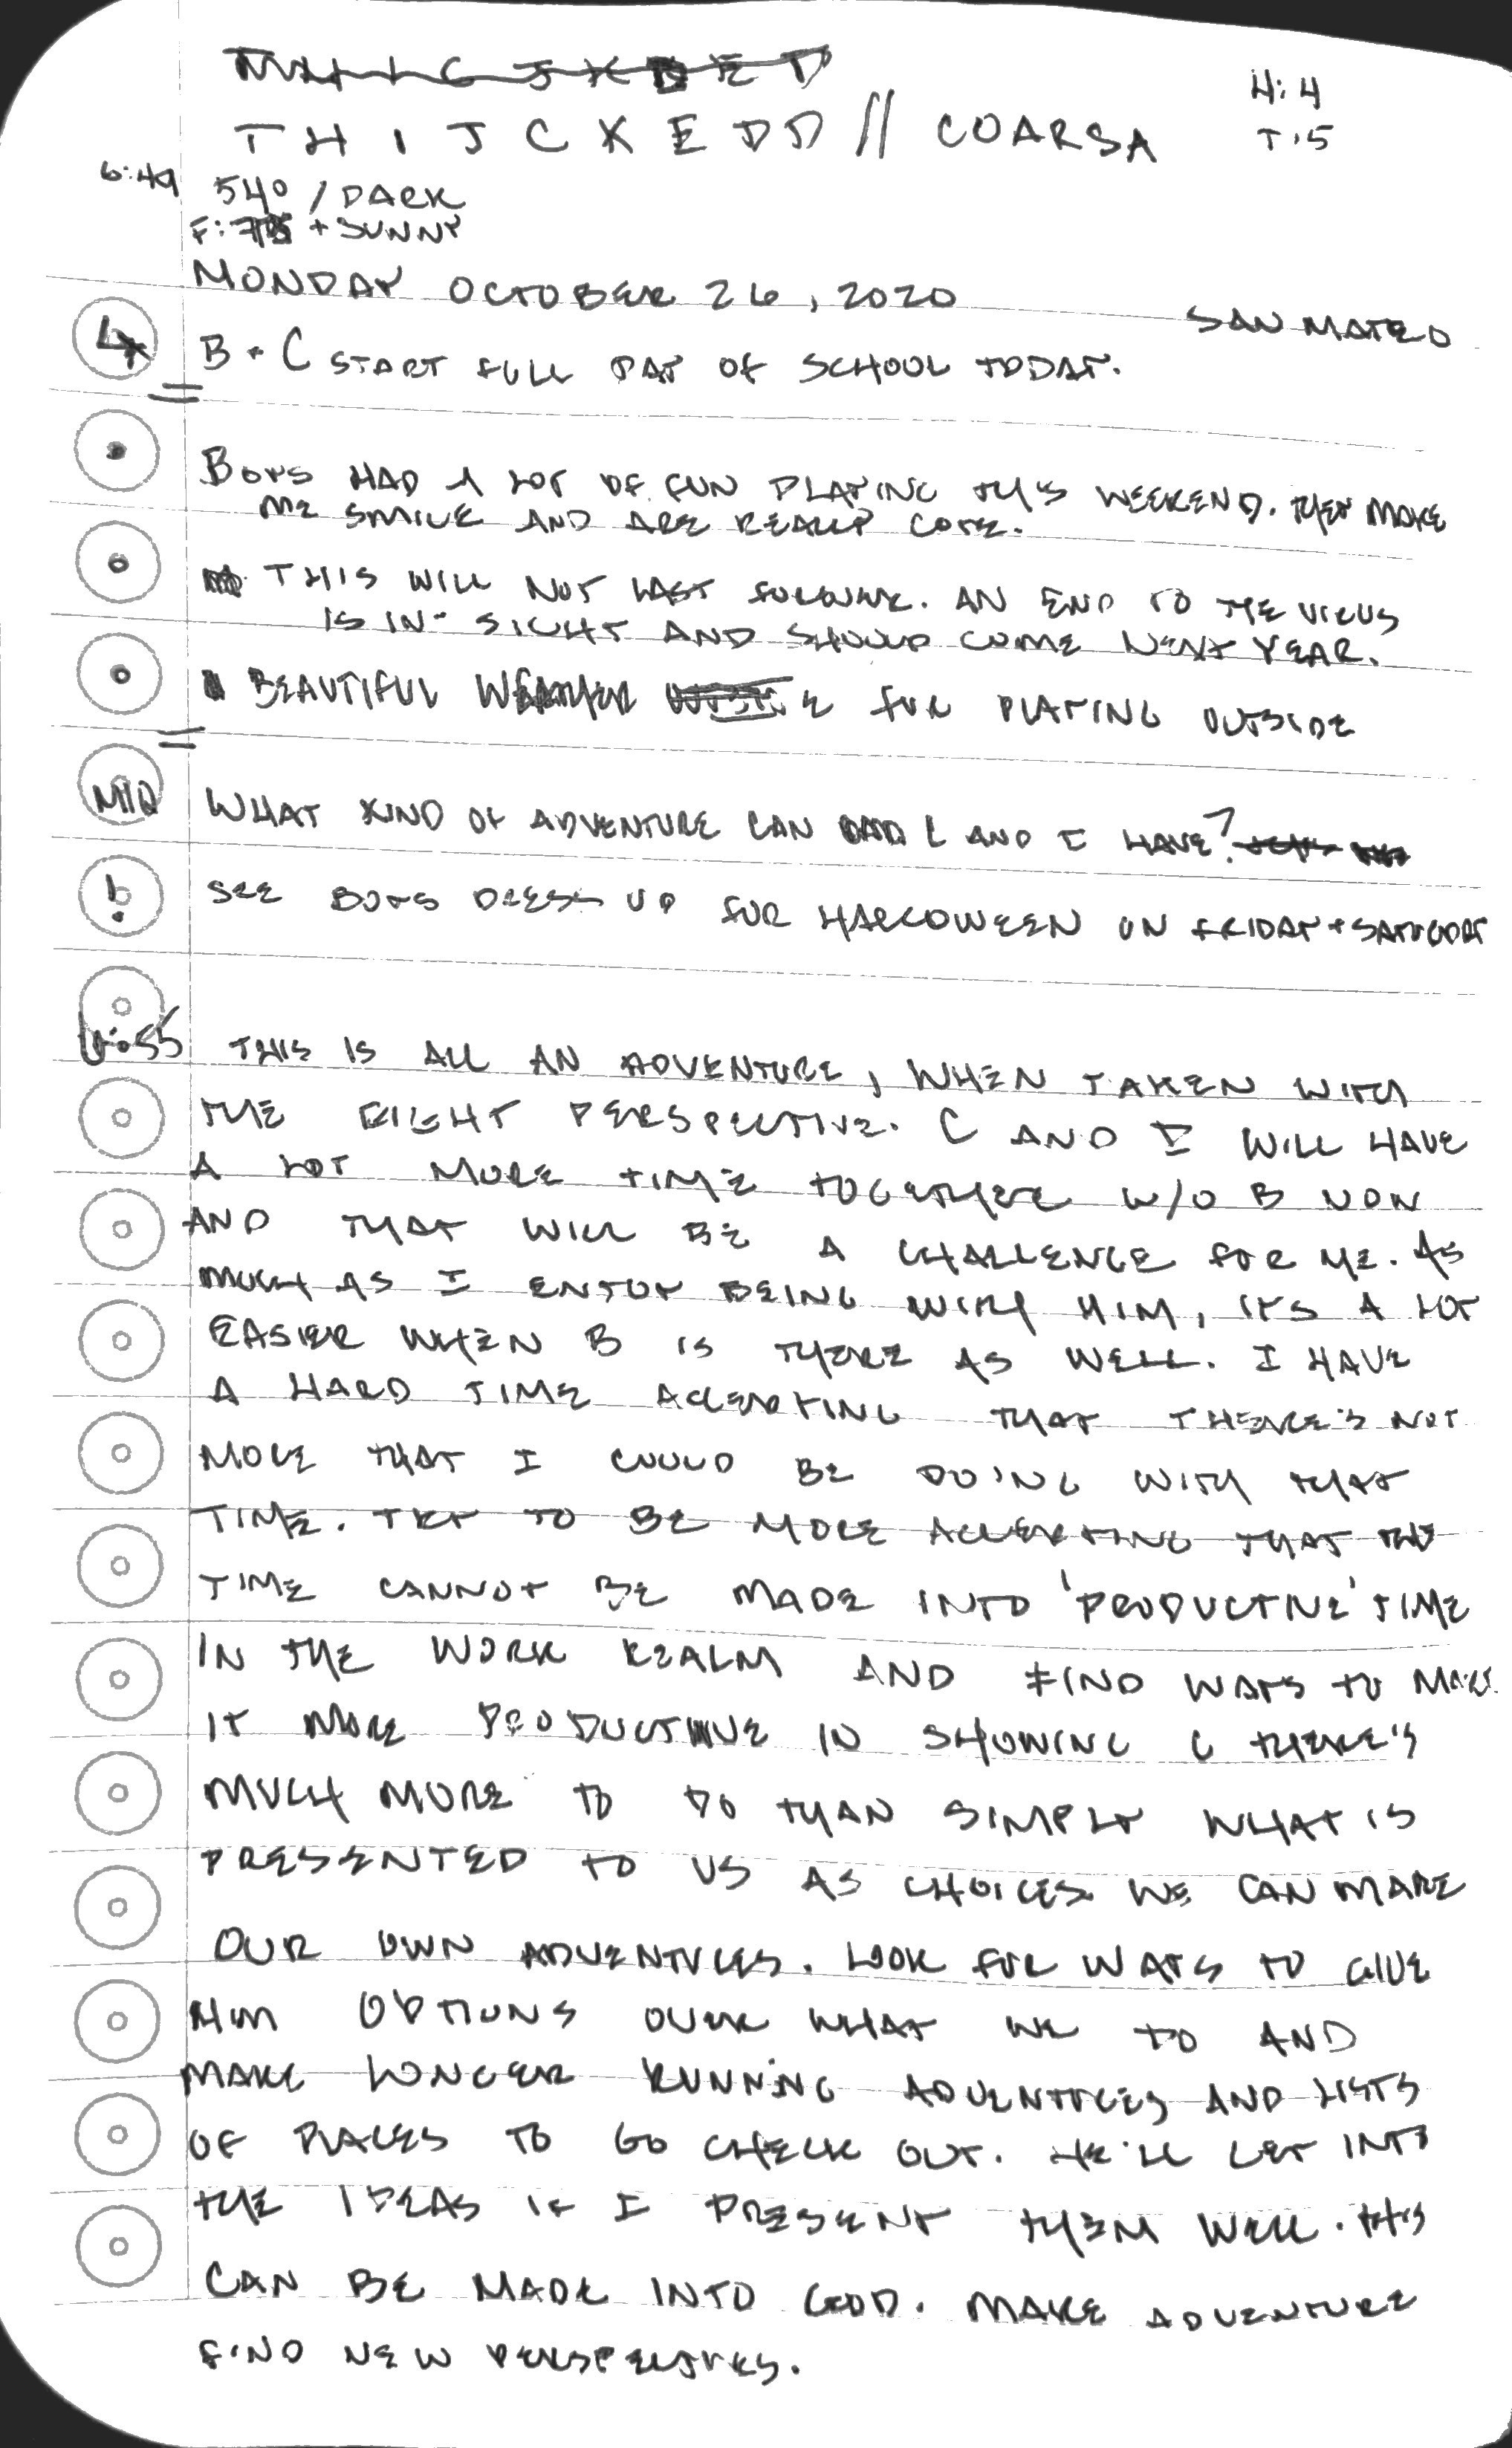 THIJCKEDD // COARSA
H: 4
T: 5
6:49 54° / DARK
F: + SUNNY
MONDAY OCTOBER 26, 2020
SAN MATEO
B + C START FULL DAY OF SCHOOL TODAY.
BOYS HAD A LOT OF FUN PLAYING THIS WEEKEND. THEY MAKE
ME SMILE AND ARE REALLY CUTE.
THIS WILL NOT LAST FOREVER. AN END TO THE VIRUS
IS IN SIGHT AND SHOULD COME NEXT YEAR.
BEAUTIFUL WEATHER FOR PLAYING OUTSIDE
MIQ WHAT KIND OF ADVENTURE CAN C AND I HAVE?
! SEE BOYS DRESS UP FOR HALLOWEEN ON FRIDAY + SATURDAY
6:55 THIS IS ALL AN ADVENTURE, WHEN TAKEN WITH
THE RIGHT PERSPECTIVE. C AND I WILL HAVE
A LOT MORE TIME TOGETHER W/O B NOW
AND THAT WILL BE A CHALLENGE FOR ME. AS
MUCH AS I ENJOY BEING WITH HIM, IT'S A LOT
EASIER WHEN B IS THERE AS WELL. I HAVE
A HARD TIME ACCEPTING THAT THERE'S NOT
MORE THAT I COULD BE DOING WITH THAT
TIME. TRY TO BE MORE ACCEPTING THAT THE
TIME CANNOT BE MADE INTO 'PRODUCTIVE' TIME
IN THE WORK REALM AND FIND WAYS TO MAKE
IT MORE PRODUCTIVE IN SHOWING C THERE'S
MUCH MORE TO DO THAN SIMPLY WHAT IS
PRESENTED TO US AS CHOICES. WE CAN MAKE
OUR OWN ADVENTURES. LOOK FOR WAYS TO GIVE
HIM OPTIONS OVER WHAT WE TO AND
MAKE LONGER RUNNING ADVENTURES AND LISTS
OF PLACES TO GO CHECK OUT. HE'LL GET INTO
THE IDEAS IF I PRESENT THEM WELL. THIS
CAN BE MADE INTO GOOD. MAKE ADVENTURE
FIND NEW PERSPECTIVES.